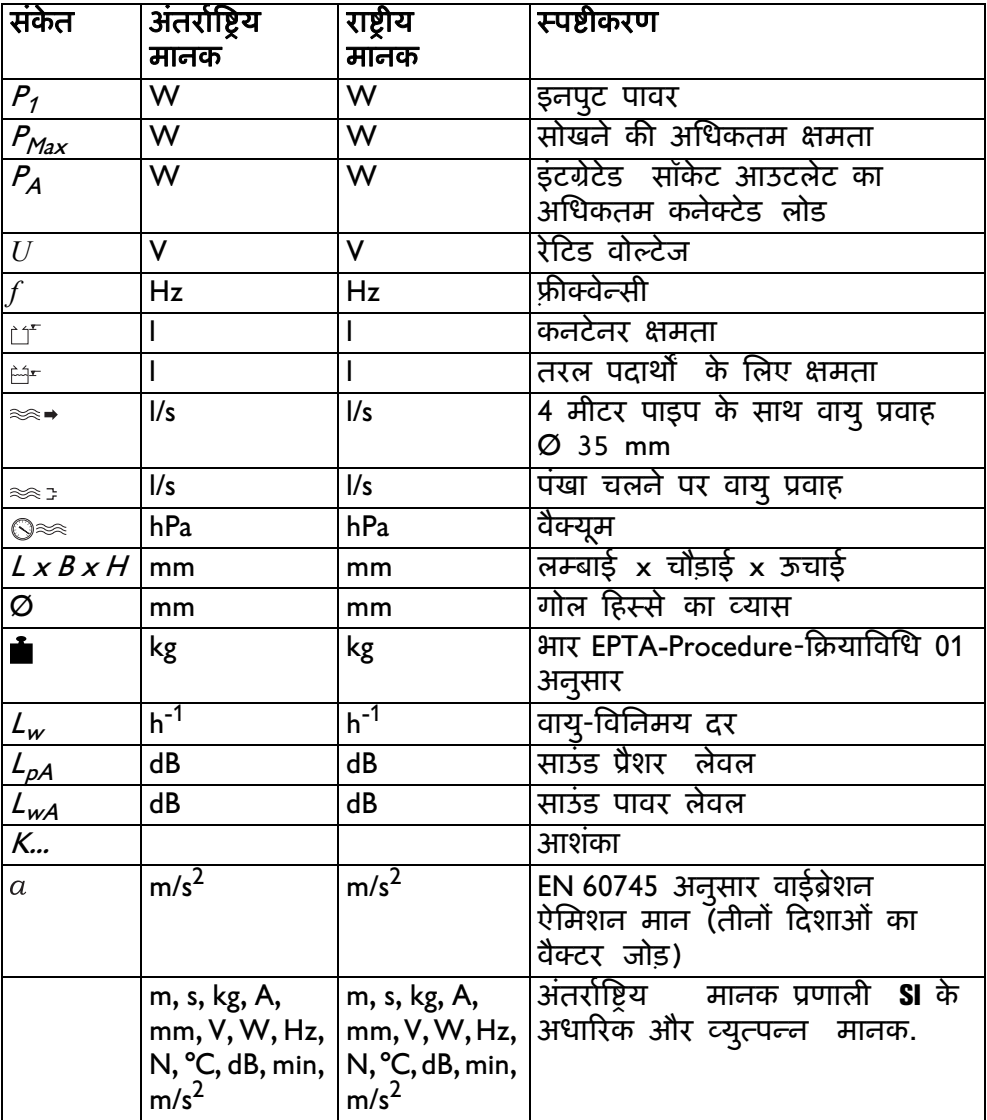 संकेत अंतर्राष्ट्रिय मानक राष्ट्रीय मानक स्पष्टीकरण
P1 W W इनपुट पावर
PMax W W सोखने की अधिकतम क्षमता
PA W W इंटग्रेटेड सॉकेट आउटलेट का
अधिकतम कनेक्टेड लोड
U V V रेटिड वोल्टेज
f Hz Hz फ़्रीक्वेन्सी
l l कनटेनर क्षमता
l l तरल पदार्थों के लिए क्षमता
l/s l/s 4 मीटर पाइप के साथ वायु प्रवाह
Ø 35 mm
l/s l/s पंखा चलने पर वायु प्रवाह
hPa hPa वैक्यूम
L x B x H mm mm लम्बाई x चौड़ाई x ऊचाई
Ø mm mm गोल हिस्से का व्यास
kg kg भार EPTA-Procedure-क्रियाविधि 01
अनुसार
Lw h-1 h-1 वायु-विनिमय दर
LpA dB dB साउंड प्रैशर लेवल
LwA dB dB साउंड पावर लेवल
K... आशंका
a m/s2 m/s2 EN 60745 अनुसार वाईब्रेशन
ऐमिशन मान (तीनों दिशाओं का
वैक्टर जोड़)
m, s, kg, A, m, s, kg, A, अंतर्राष्ट्रिय मानक प्रणाली SI के
mm, V, W, Hz, mm, V, W, Hz, अधारिक और व्युत्पन्न मानक.
N, °C, dB, min, N, °C, dB, min,
m/s2 m/s2